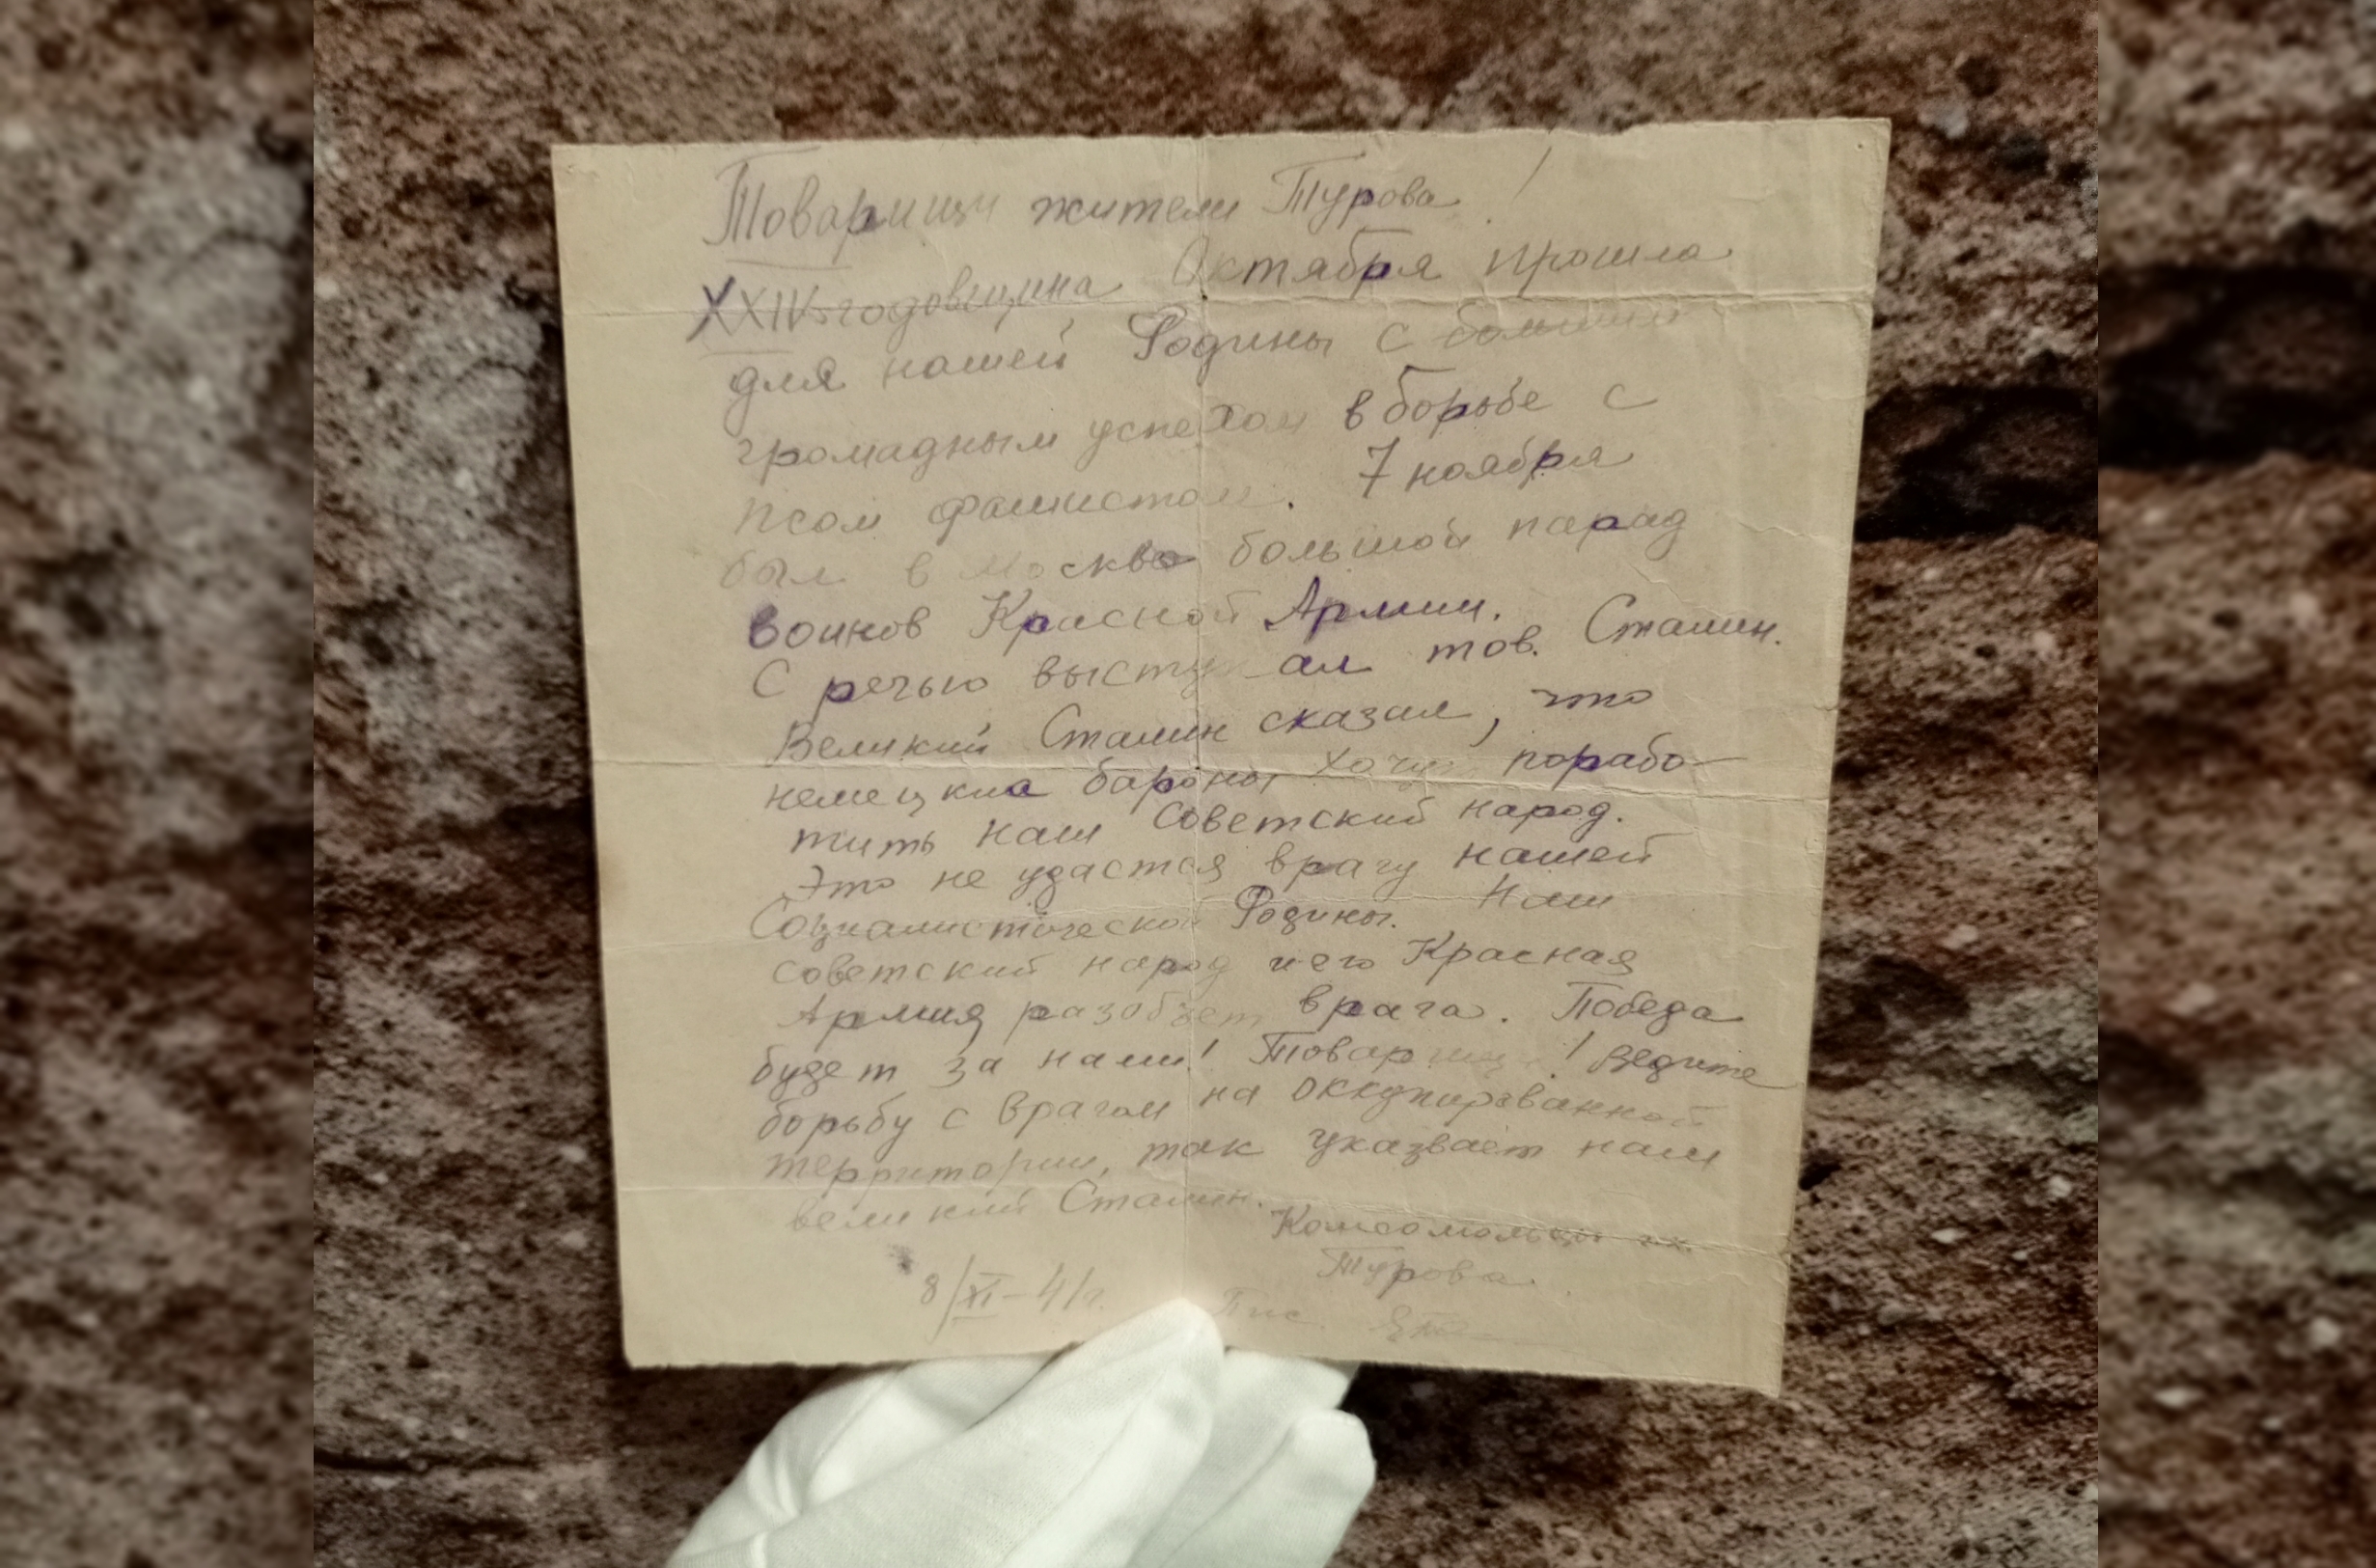 Товарищи жители Турова!
XXIV годовщина Октября прошла
для нашей Родины с большим
громадным успехом в борьбе с
псом фашистом. 7 ноября
был в Москве большой парад
воинов Красной Армии.
С речью выступал тов. Сталин.
Великий Сталин сказал, что
немецкие бароны хочут порабо-
тить наш Советский народ.
Это не удастся врагу нашей
Социалистической Родины. Наш
советский народ и его Красная
Армия разобьет врага. Победа
будет за нами! Товарищи! Ведите
борьбу с врагом на оккупированной
территории, так указвает наш
великий Сталин.
Комсомольцы
Турова
8/XI-41г. Пис.